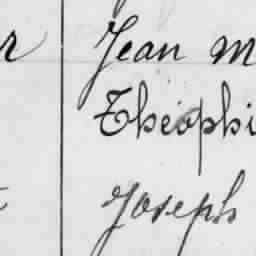 r Jean M
Théophi
t Joseph